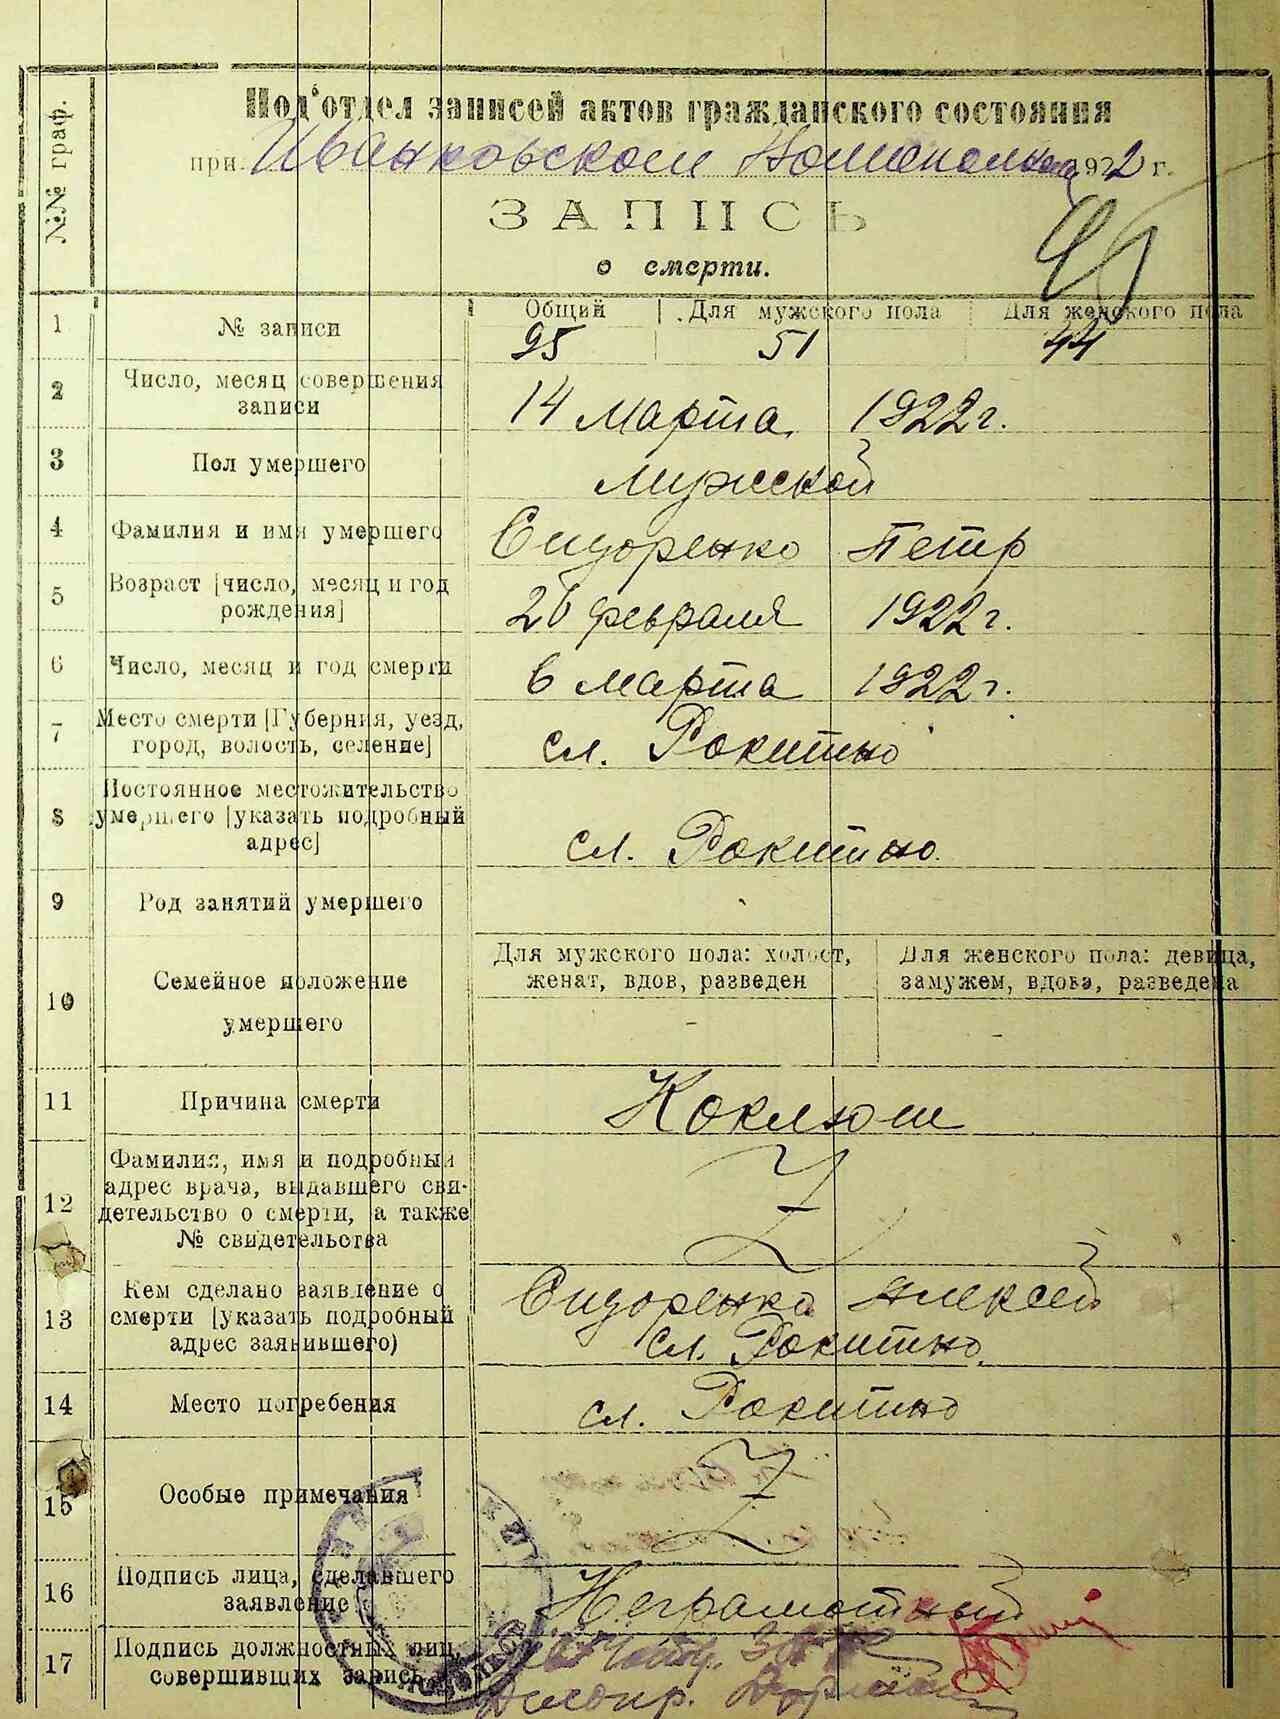 №№ граф.
Под'отдел записей актов гражданского состояния
при Иваньковском 1922 г.
ЗАПИСЬ
о смерти.
95
1 № записи Общий Для мужского пола Для женского пола
95 51 44
2 Число, месяц совершения
записи 14 Марта 1922 г.
3 Пол умершего Мужской
4 Фамилия и имя умершего Сидоренко Петр
5 Возраст [число, месяц и год
рождения] 26 февраля 1922 г.
6 Число, месяц и год смерти 6 Марта 1922 г.
7 Место смерти [Губерния, уезд,
город, волость, селение] сл. Рокитно
8 Постоянное местожительство
умершего [указать подробный
адрес] сл. Рокитно
9 Род занятий умершего
10 Семейное положение
умершего
Для мужского пола: холост,
женат, вдов, разведен
Для женского пола: девица,
замужем, вдова, разведена
- -
11 Причина смерти Коклюш
12 Фамилия, имя и подробный
адрес врача, выдавшего сви-
детельство о смерти, а также
№ свидетельства
13 Кем сделано заявление о
смерти [указать подробный
адрес заявившего)
Сидоренко Алексей
сл. Рокитно
14 Место погребения сл. Рокитно
15 Особые примечания
16 Подпись лица, сделавшего
заявление Неграмотный
17 Подпись должностных лиц,
совершивших запись
Делопр.